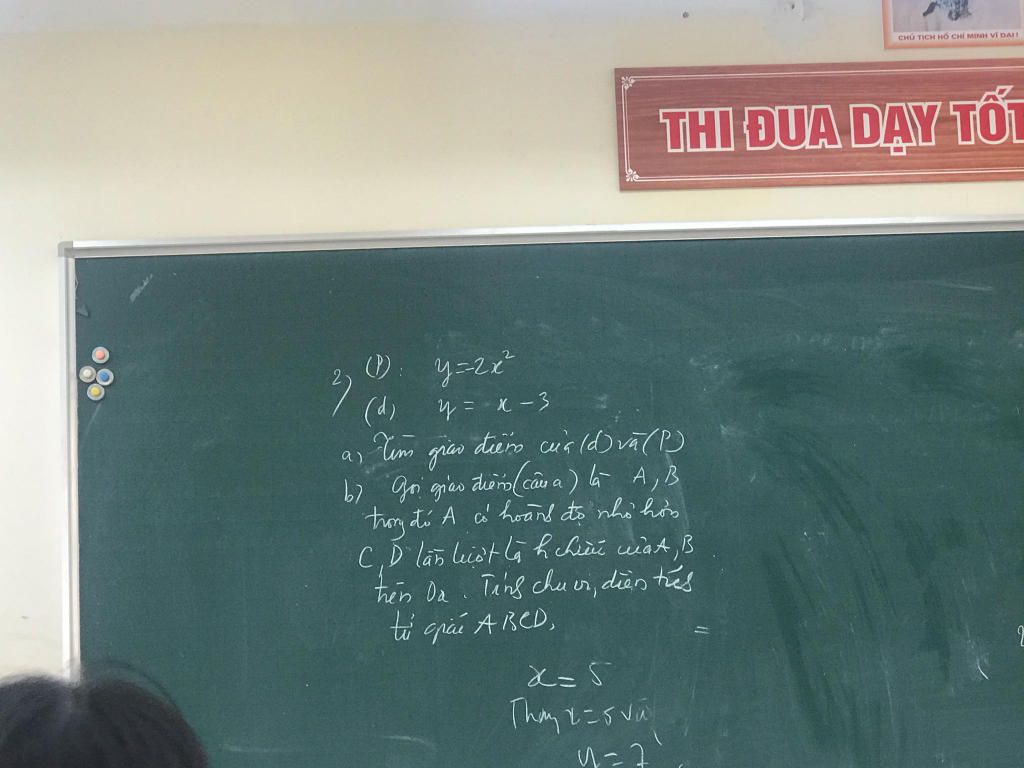 CHỦ TỊCH HỒ CHÍ MINH VĨ ĐẠI!
THI ĐUA DẠY TỐT
2) (P): y=-2x²
(d) y = x - 3
a, Tìm giao điểm của (d) và (P)
b) Gọi giao điểm (câu a) là A, B
trong đó A có hoành độ nhỏ hơn
C, D lần lượt là h chiếu của A, B
trên Ox. Tính chu vi, diện tích
tứ giác ABCD,
=
x = 5
Thay x = 5 và
y = 7